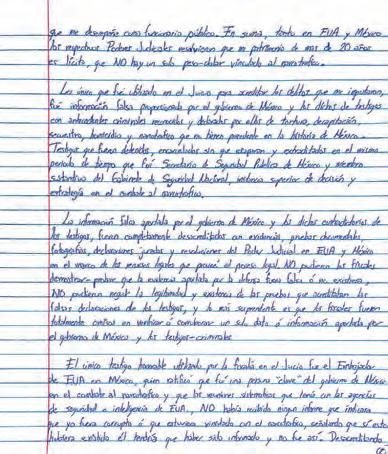 que me desempeñé como funcionario público. En suma, tanto en EUA y México
los respectivos Poderes Judiciales resolvieron que mi patrimonio de mas de 20 años
es lícito, que NO hay un solo peso-dolar vinculado al narcotráfico.
Lo único que fué utilizado en el Juicio para acreditar los delitos que me imputaron,
fué información falsa proporcionada por el gobierno de México y los dichos de testigos
con antecedentes criminales reconocidos y detenidos por ellos de tortura, desaparición,
secuestro, homicidio y narcotráfico que no tienen precedente en la historia de México.
Testigos que fueron detenidos, encarcelados sin que escaparan y extraditados en el mismo
periodo de tiempo que fuí Secretario de Seguridad Pública de México y miembro
sustantivo del Gabinete de Seguridad Nacional, instancia superior de decisión y
estrategia en el combate al narcotráfico.
La información falsa aportada por el gobierno de México y los dichos contradictorios de
los testigos, fueron completamente desacreditados con evidencia, pruebas documentales,
fotografías, declaraciones juradas y resoluciones del Poder Judicial en EUA y México
en el marco de los recursos legales que provee el proceso legal. NO pudieron los Fiscales
demostrar-probar que la evidencia aportada por la defensa fuera falsa ó no existiera,
NO pudieron negar la legitimidad y existencia de las pruebas que acreditaban las
falsas declaraciones de los testigos, y lo más sorprendente es que los fiscales fueron
totalmente omisos en verificar ó corroborar un solo dato ó información aportada por
el gobierno de México y los testigos-criminales
El único testigo honorable utilizado por la fiscalía en el Juicio fue el Embajador
de EUA en México, quien ratificó que fuí una persona "clave" del gobierno de México
en el combate al narcotráfico y que las reuniones sistemáticas que tenía con las agencias
de seguridad e inteligencia de EUA, NO había recibido ningún informe que indicara
que yo fuera corrupto ó que estuviera vinculado con el narcotráfico, señalando que si esto
hubiera existido él tendría que haber sido informado y no fue así. Desacreditando